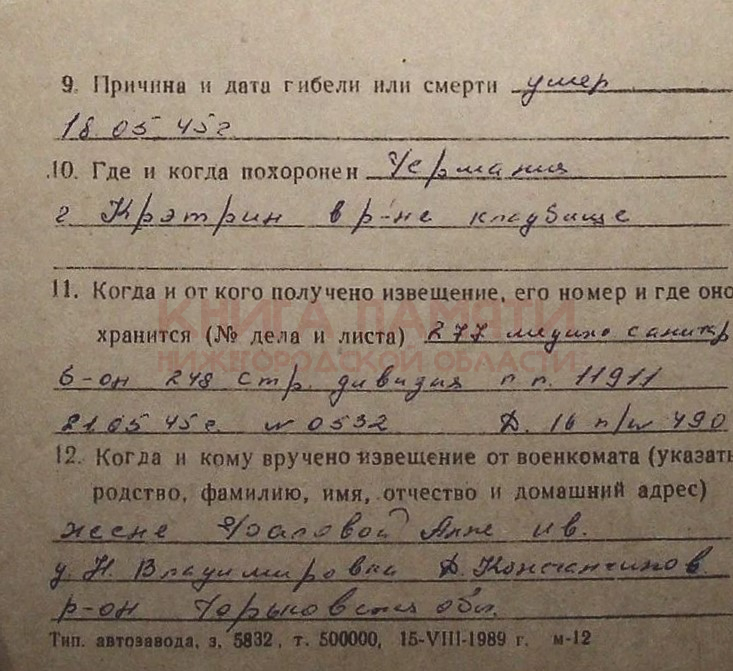 9. Причина и дата гибели или смерти умер
18 05 45г
10. Где и когда похоронен Германия
г Крэтрин в р-не кладбище
11. Когда и от кого получено извещение, его номер и где оно
КНИГА ПАМЯТИ
хранится (№ дела и листа) 277 медико санитар
НИЖЕГОРОДСКОЙ ОБЛАСТИ
б-он 248 стр. дивизия п п. 11911
21 05 45г. № 0532 Д. 16 п/№ 490
12. Когда и кому вручено извещение от военкомата (указать
родство, фамилию, имя, отчество и домашний адрес)
жене Анне Ив.
д. Н. Владимировка Д. Константинов
р-он Горьковская обл.
Тип. автозавода, з. 5832, т. 500000, 15-VIII-1989 г. м-12